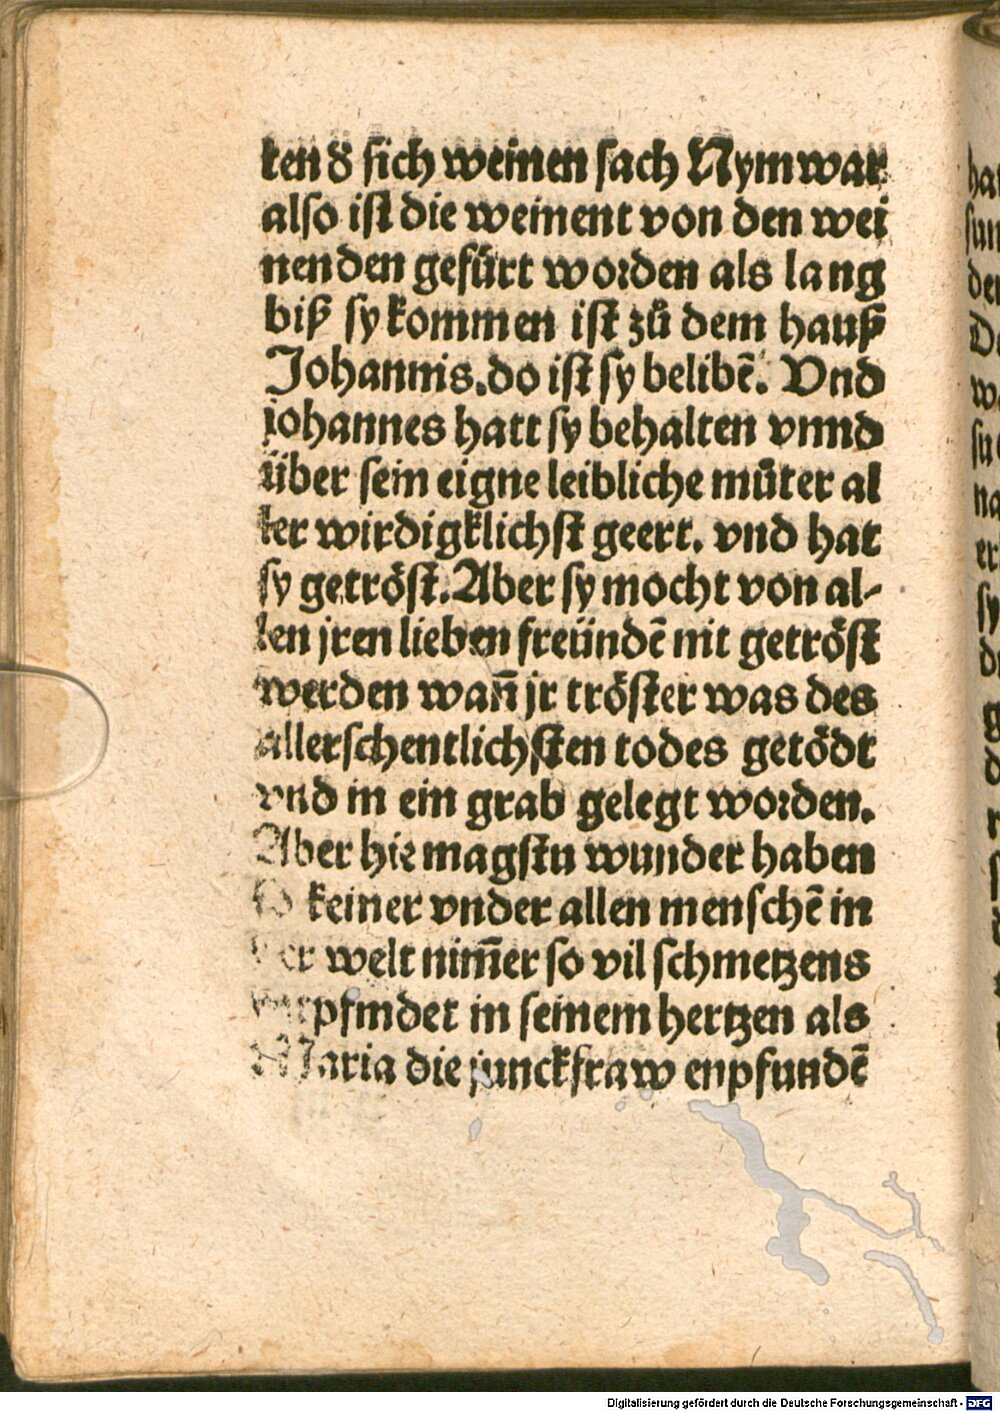 ken d̕ sich weinen sach Nym war
also ist die weinent von den wei
nenden gefürt worden als lang
biß sy kommen ist zů dem hauß
Johannis. do ist sy belibē. Vnd
johannes hatt sy behalten vnnd
über sein eigne leibliche můter al
ler wirdigklichst geert. vnd hat
sy getröst. Aber sy mocht von al-
len jren lieben freündē nit getröst
werden wañ jr tröster was des
allerschentlichsten todes getödt
vnd in ein grab gelegt worden.
Aber hie magstu wunder haben
keiner vnder allen menschē in
der welt nim̄er so vil schmetzens
in seinem hertzen als
Maria die junckfraw enpfundē
Digitalisierung gefördert durch die Deutsche Forschungsgemeinschaft - DFG